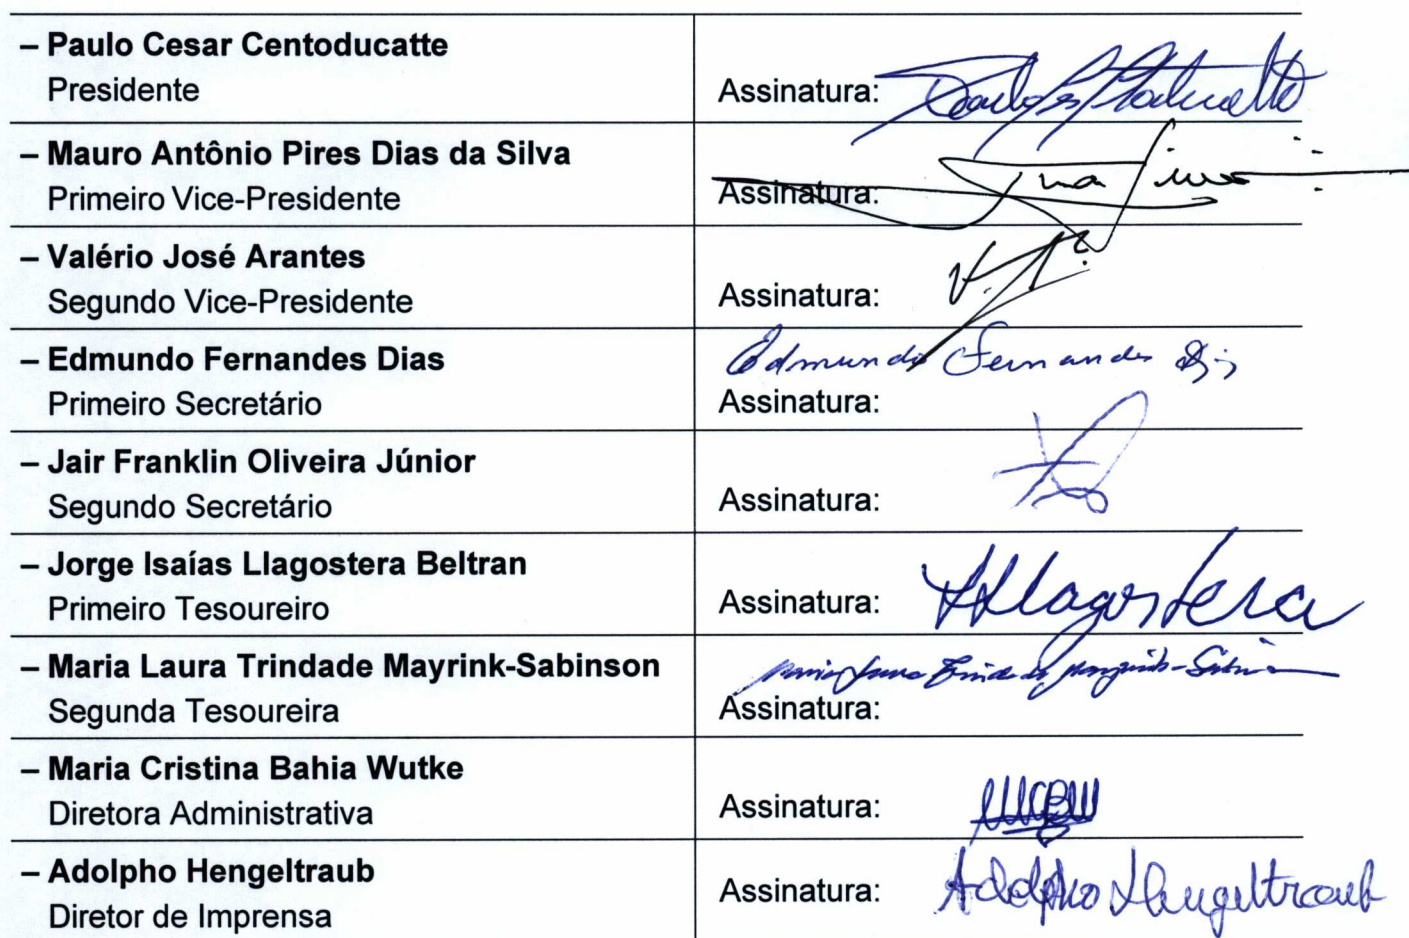 – Paulo Cesar Centoducatte
Presidente
Assinatura:
– Mauro Antônio Pires Dias da Silva
Primeiro Vice-Presidente
Assinatura:
– Valério José Arantes
Segundo Vice-Presidente
Assinatura:
– Edmundo Fernandes Dias
Primeiro Secretário
Edmundo Fernandes Dias
Assinatura:
– Jair Franklin Oliveira Júnior
Segundo Secretário
Assinatura:
– Jorge Isaías Llagostera Beltran
Primeiro Tesoureiro
Assinatura: Llagostera
– Maria Laura Trindade Mayrink-Sabinson
Segunda Tesoureira
Maria Laura Trindade Mayrink-Sabinson
Assinatura:
– Maria Cristina Bahia Wutke
Diretora Administrativa
Assinatura: MCBW
– Adolpho Hengeltraub
Diretor de Imprensa
Assinatura: Adolpho Hengeltraub